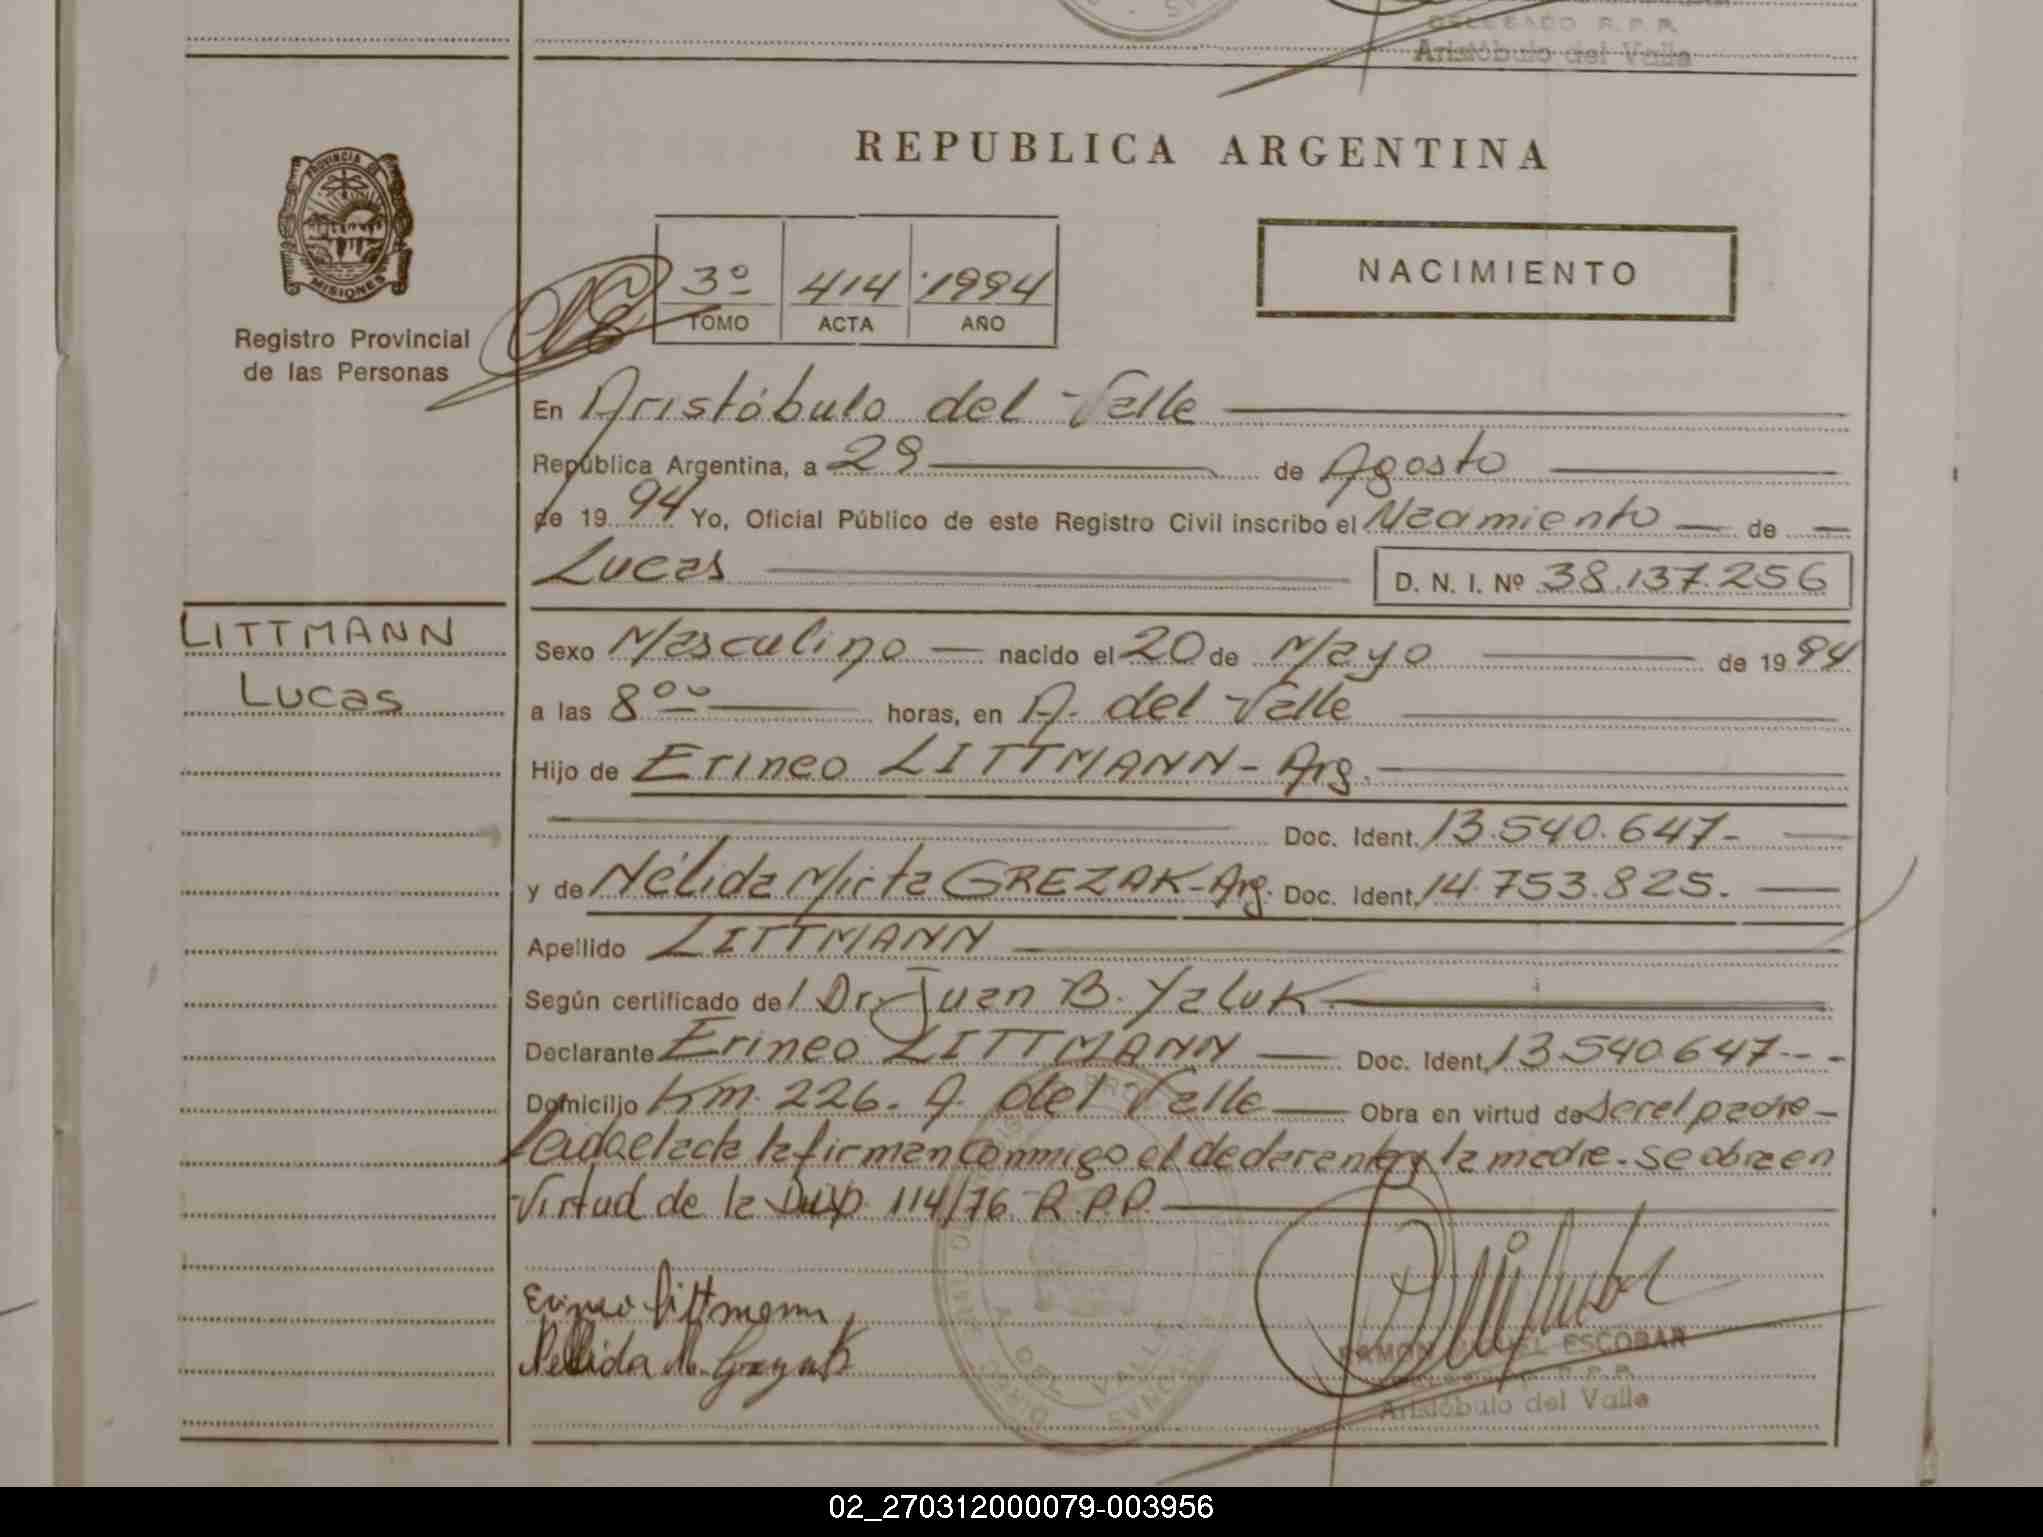 DELEGADO R.P.R.
Aristóbulo del Valle
REPUBLICA ARGENTINA
PROVINCIA DE
MISIONES
Registro Provincial
de las Personas
3º 414 1994
TOMO ACTA AÑO
NACIMIENTO
En Aristóbulo del Valle
República Argentina, a 29 de Agosto
de 1994 Yo, Oficial Público de este Registro Civil inscribo el Nacimiento de
Lucas D. N. I. Nº 38.137.256
LITTMANN
Lucas
Sexo Masculino nacido el 20 de Mayo de 1994
a las 8⁰⁰ horas, en A. del Valle
Hijo de Erineo LITTMANN - Arg.
Doc. Ident. 13.540.647-
y de Nélida Mirta GREZAK - Arg. Doc. Ident. 14.753.825.
Apellido LITTMANN
Según certificado del Dr. Juan B. Yaluk
Declarante Erineo LITTMANN Doc. Ident. 13.540.647--
Domicilio Km. 226. A. del Valle Obra en virtud de ser el padre
Leída el acta la firman conmigo el declarante y la madre. Se obra en
Virtud de la Disp. 114/76 R.P.P.
Erineo Littmann
Nellida M. Grezak
RAMON ESCOBAR
Aristóbulo del Valle
A. DEL VALLE
02_270312000079-003956